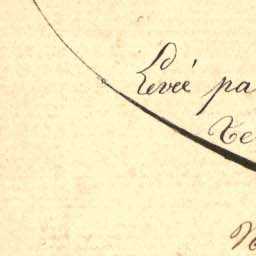 Levée pa
Te
N